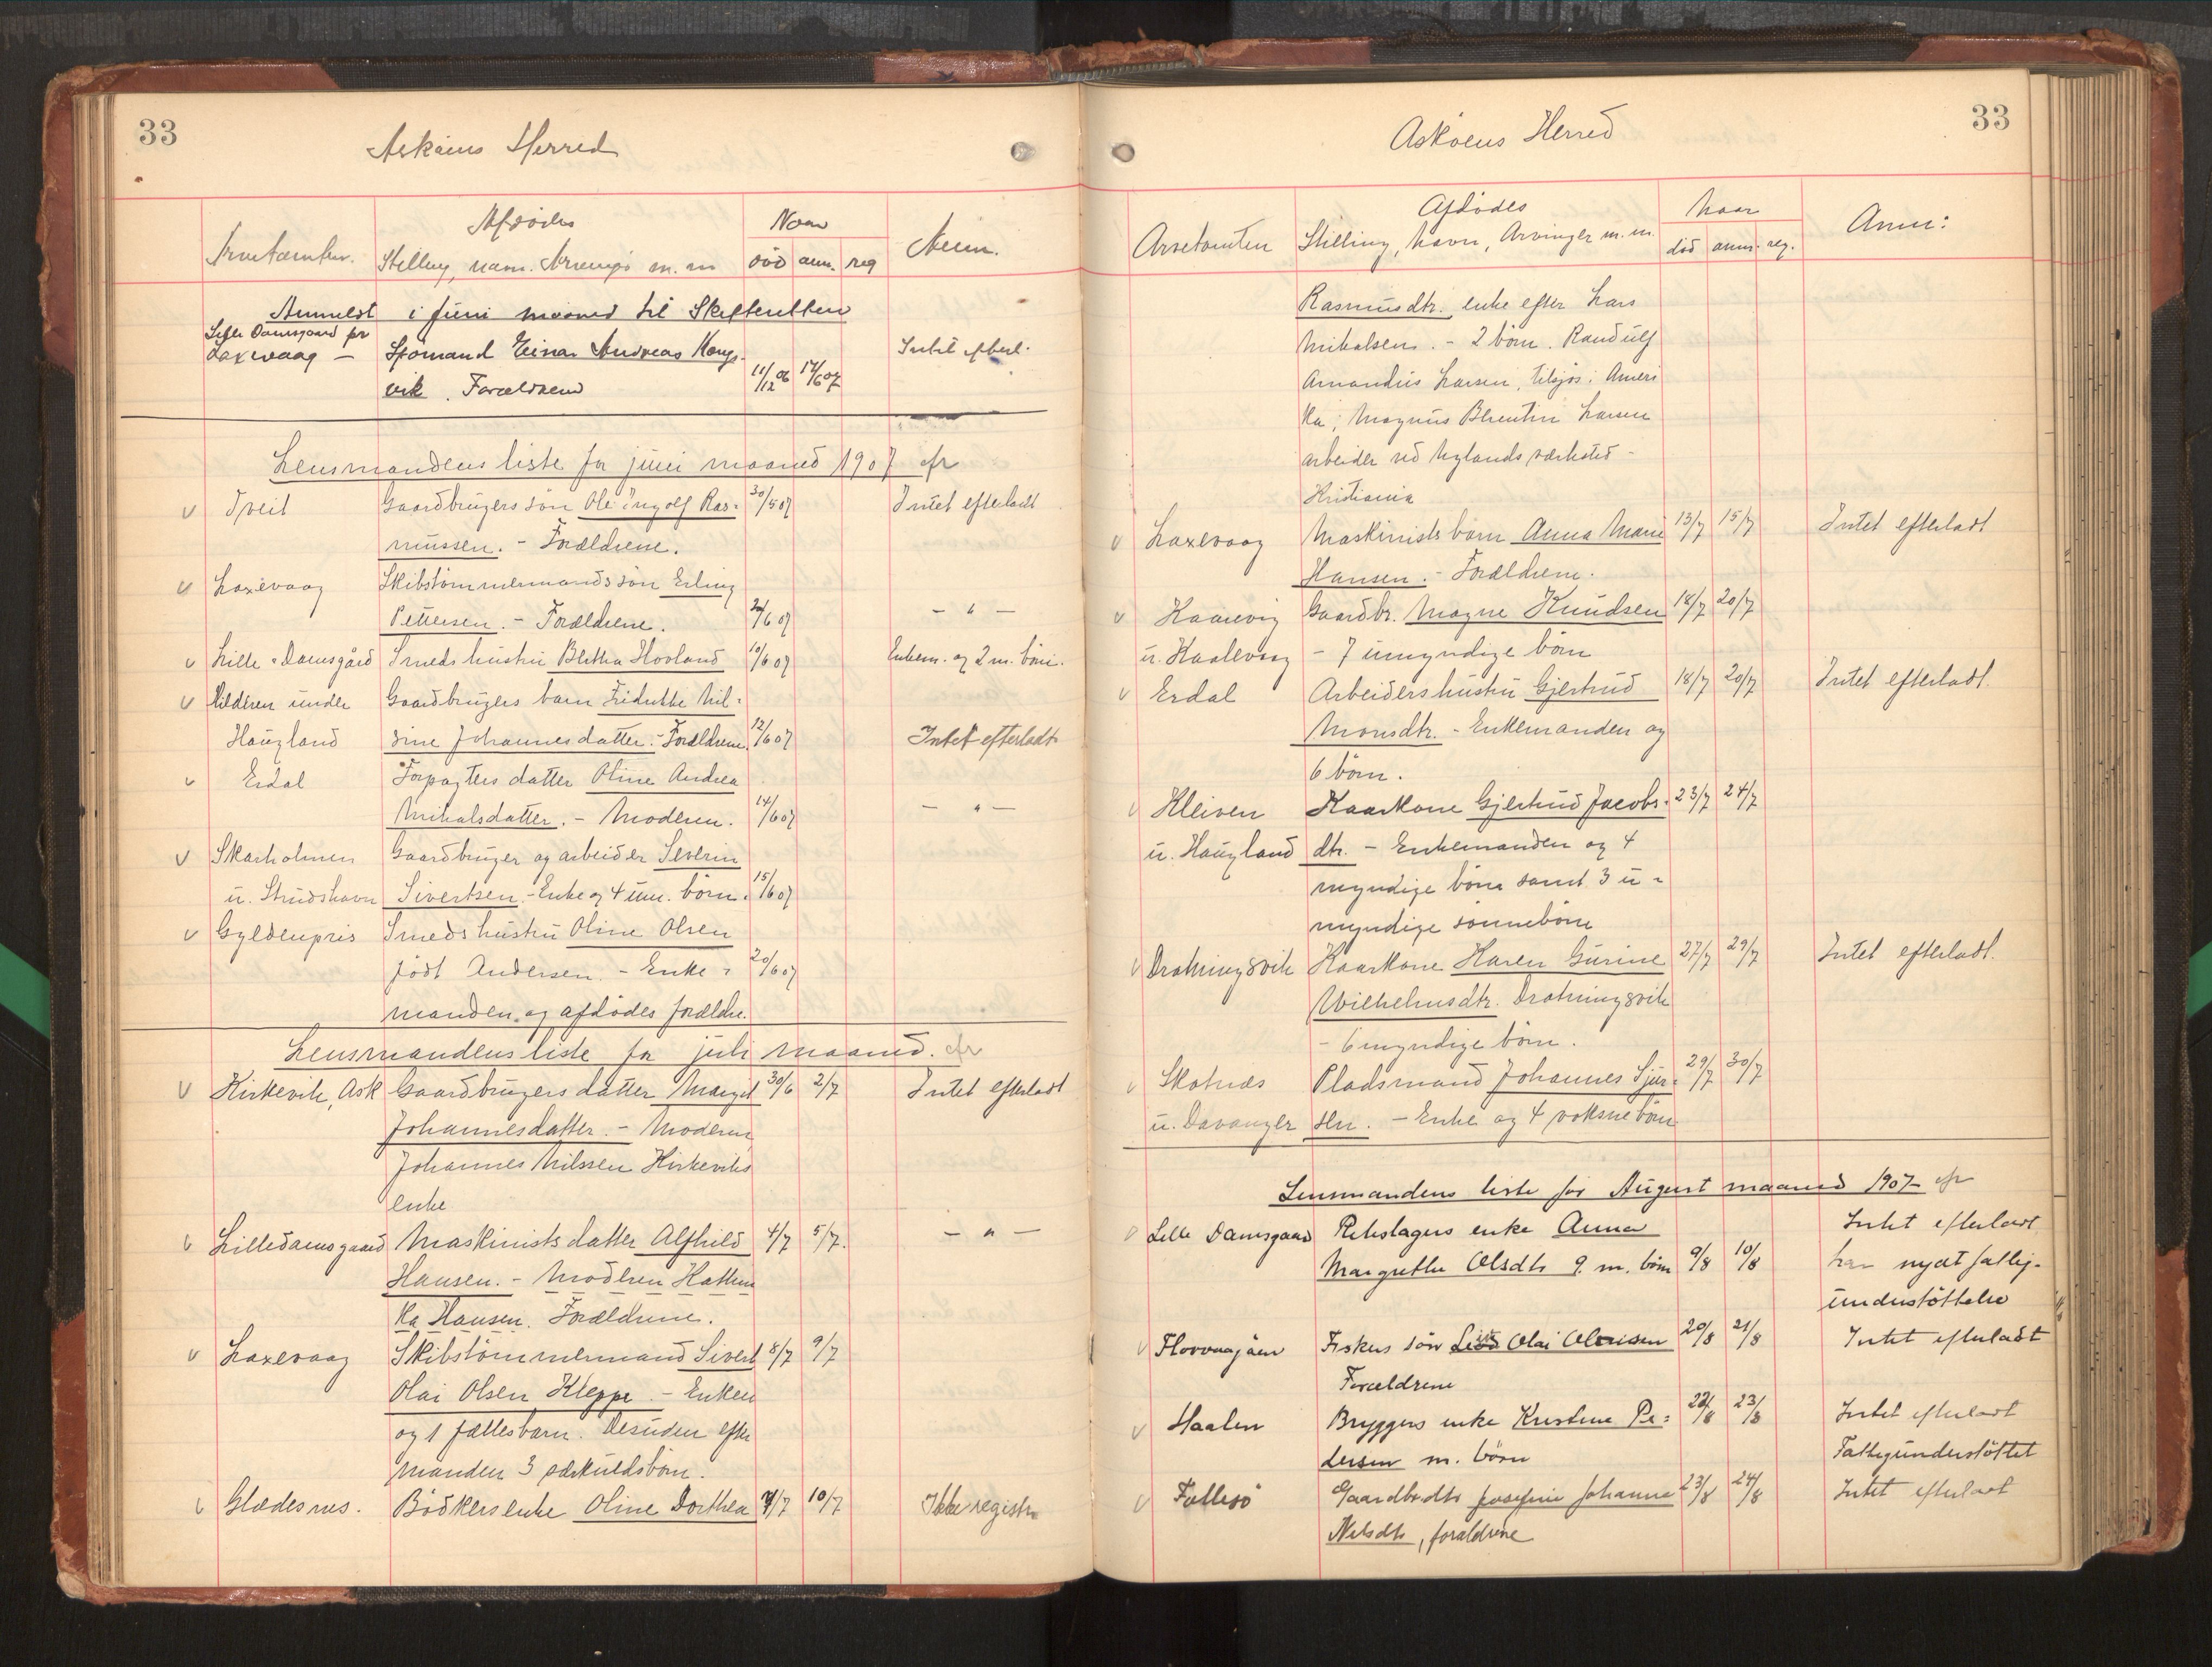 33
Askøens Herred
Arvetomten.
Afdødes
Stilling, navn, Arvinger m. m
Naar
død anm. reg
Anm.
Anmeldt i juni maaned til Skifteretten
Lille Damsgaard pr
Laxevaag — Sjømand Einar Andreas Kongs- Intet efterl.
vik. Forældrene 11/12 06 17/6 07
Lensmandens liste for juni maaned 1907
v Tveit Gaardbrugers søn Ole Ingolf Ras= 30/5 07 Intet efterladt
mussen. - Forældrene.
v Laxevaag Skibstømmermands søn Erling
Pettersen. - Forældrene. /6 07 - " -
v Lille-Damsgård Smeds hustru Blettra Hovland 10/6 07 Enkem. og 2 m. børn.
v Kilderen under Gaardbrugers barn Fridrikke Nil=
Haugland sine Johannesdatter. - Forældrene 12/6 07 Intet efterladt
v Erdal Forpagters datter Oline Andrea
Mikalsdatter. - Moderen. 14/6 07 - " -
v Skarholmen Gaardbruger og arbeider Severin
u. Strudshavn Sivertsen. - Enke og 4 um. børn. 15/6 07
v Gyldenpris Smeds hustru Oline Olsen
født Andersen. - Enke= 20/6 07
manden og afdødes forældre.
Lensmandens liste for juli maaned.
v Kirkevik, Ask Gaardbrugers datter Margit 30/6 2/7 Intet efterladt
Johannesdatter. - Moderen
Johannes Nilssen Kirkeviks
enke
v Lilledamsgaard Maskinists datter Alfhild 4/7 5/7. - " -
Hansen. - Moderen Kathin
ka Hansen. Forældrene.
v Laxevaag Skibstømmermand Sivert 8/7 9/7
Olai Olsen Kleppe. - Enken
og 1 fællesbarn. Desuden efter
manden 3 særkuldsbørn.
v Glædesnes. Bødkers enke Oline Dorthea /7 10/7 Ikke registr
33
Askøens Herred
Arvetomten
Afdødes
Stilling, navn, Arvinger m. m.
Naar
død anm. reg.
Anm:
Rasmusdtr. enke efter Lars
Mikalsen. - 2 børn. Randulf
Amandus Larsen, tilsjøs i Ameri
ka; Magnus Larsen
arbeider ved Nylands værksted -
Kristiania
v Laxevaag Maskinists barn Anna Marie 13/7 15/7 Intet efterladt
Hansen. - Forældrene.
v Kaarevig Gaardbr. Magne Knudsen 18/7 20/7
u. Haalevaag - 7 umyndige børn
v Erdal Arbeiders hustru Gjertrud 18/7 20/7 Intet efterladt.
Monsdtr. - Enkemanden og
6 børn.
v Kleiven Kaarkone Gjertrud Jacobs= 23/7 24/7
u. Haugland dtr. - Enkemanden og 4
myndige børn samt 3 u=
myndige sønnebørn
v Drotningsvik Kaarkone Karen Gurine 27/7 29/7 Intet efterladt.
Wilhelmsdtr. Drotningsvik
- 6 myndige børn.
v Skotnæs Pladsmand Johannes Sjur= 29/7 30/7
u. Davanger sen. - Enke og 4 voksne børn
Lensmandens liste for August maaned 1907
v Lille Damsgaard Rebslagers enke Anna Intet efterladt
Margrethe Olsdtr 9. m. børn 9/8 10/8 har nydt fattig-
understøttelse
v Florvaagøen Fiskers søn Olai Olai 20/8 21/8 Intet efterladt
Forældrene
v Haalen Bryggers enke Kristine Pe= 22/8 23/8 Intet efterladt
dersen m. børn Fattigunderstøttet
v Follesø Gaardbr.dtr Josefine Johanne 23/8 24/8 Intet efterladt
Nilsdtr, forældrene